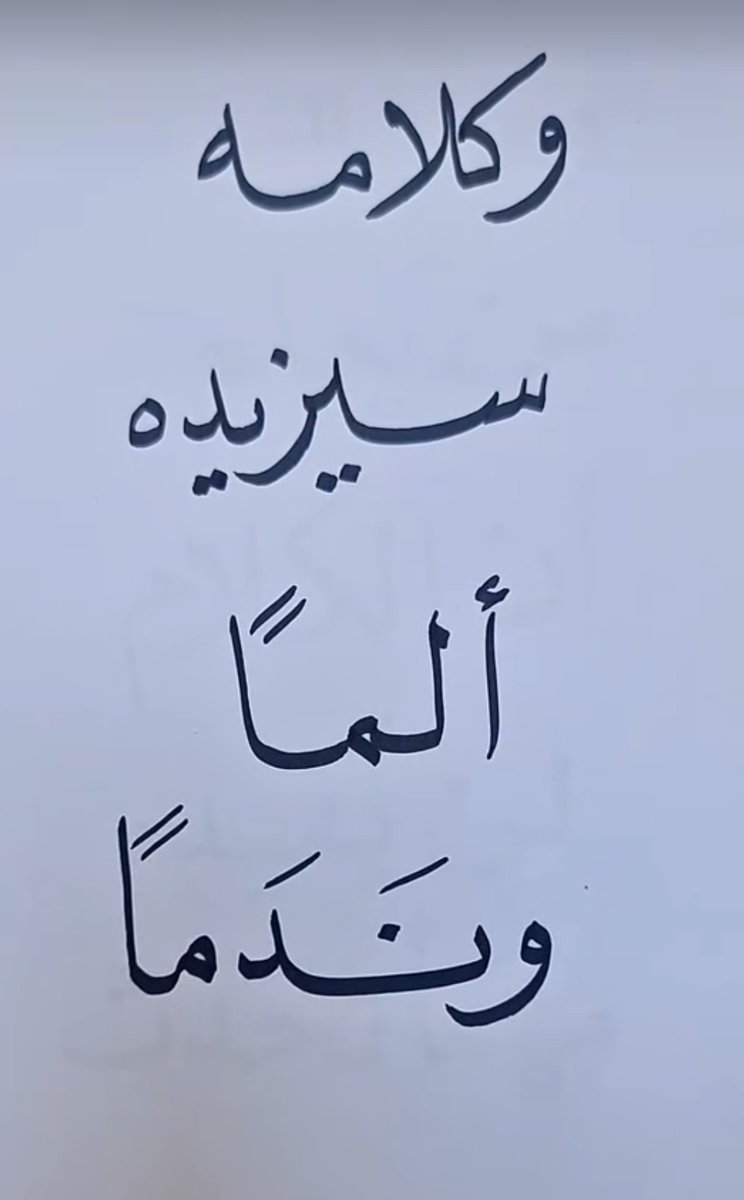 وكلامه
سيزيده
ألماً
ونَدَماً